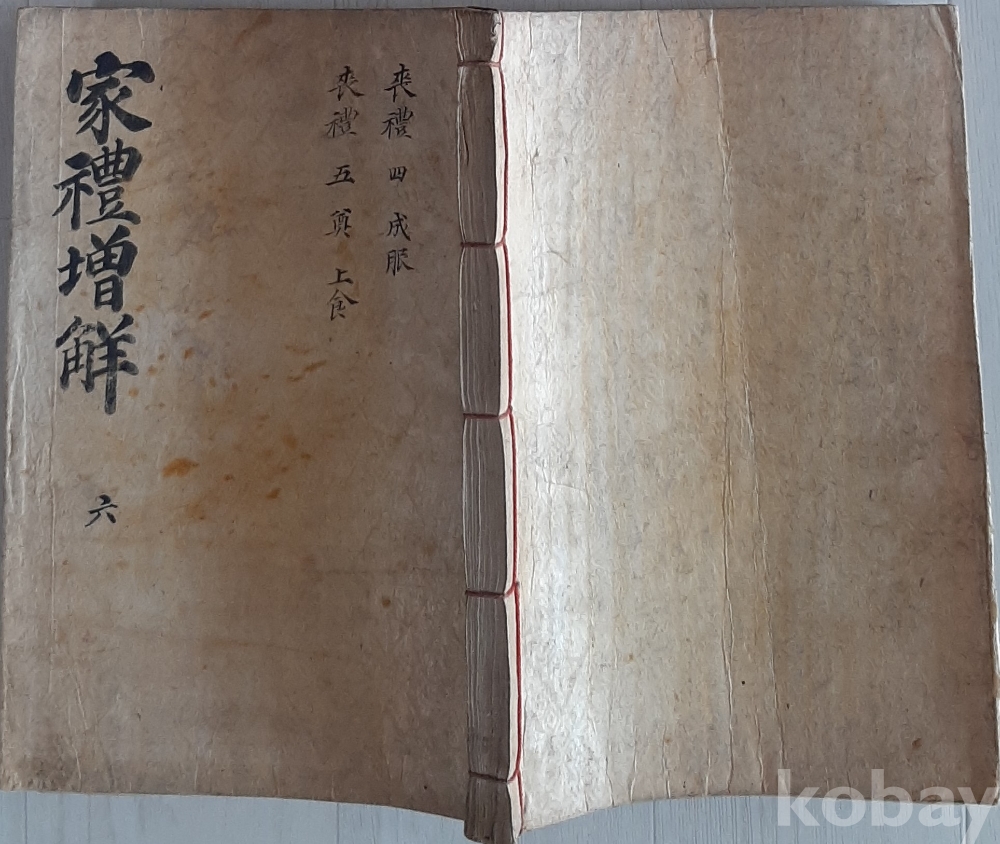 喪禮 四 成服
喪禮 五 奠 上食
家禮增解
六
kobay